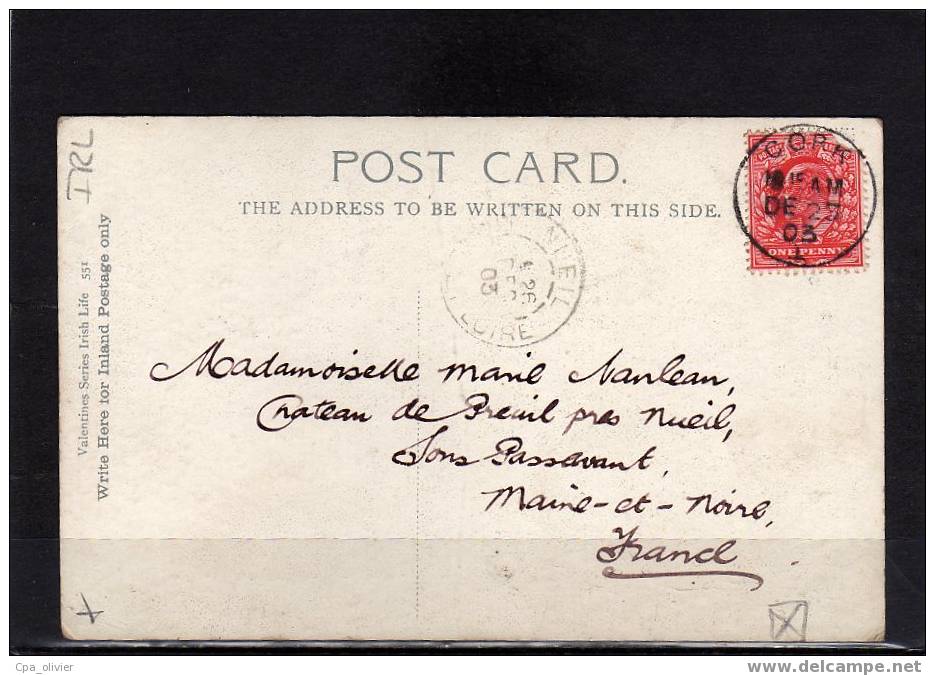 POST CARD.
THE ADDRESS TO BE WRITTEN ON THIS SIDE.
CORK
AM
DE 27
03
ONE PENNY
NUEIL
26
03
LOIRE
IRL
Valentines Series Irish Life 551
Write Here for Inland Postage only
Mademoiselle Marie Nanleau,
Chateau de Breuil pres Nueil,
Sous Passavant,
Maine-et-Noire,
France
Cpa_olivier
www.delcampe.net